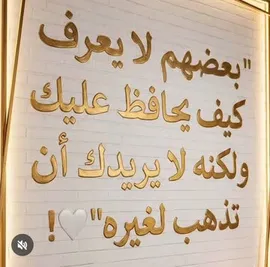 "بعضهم لا يعرف
كيف يحافظ عليك
ولكنه لا يريدك أن
تذهب لغيره"🤍!